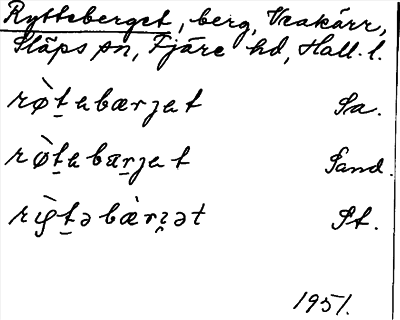 Rytteberget, berg, Veakärr,
Släps sn, Fjäre hd, Hall. l.
rø̀t̠ebærjet Sa.
rø̀t̠ebær̠jet Sand.
rìt̠əbæ̀rı̯ət St.
1951.